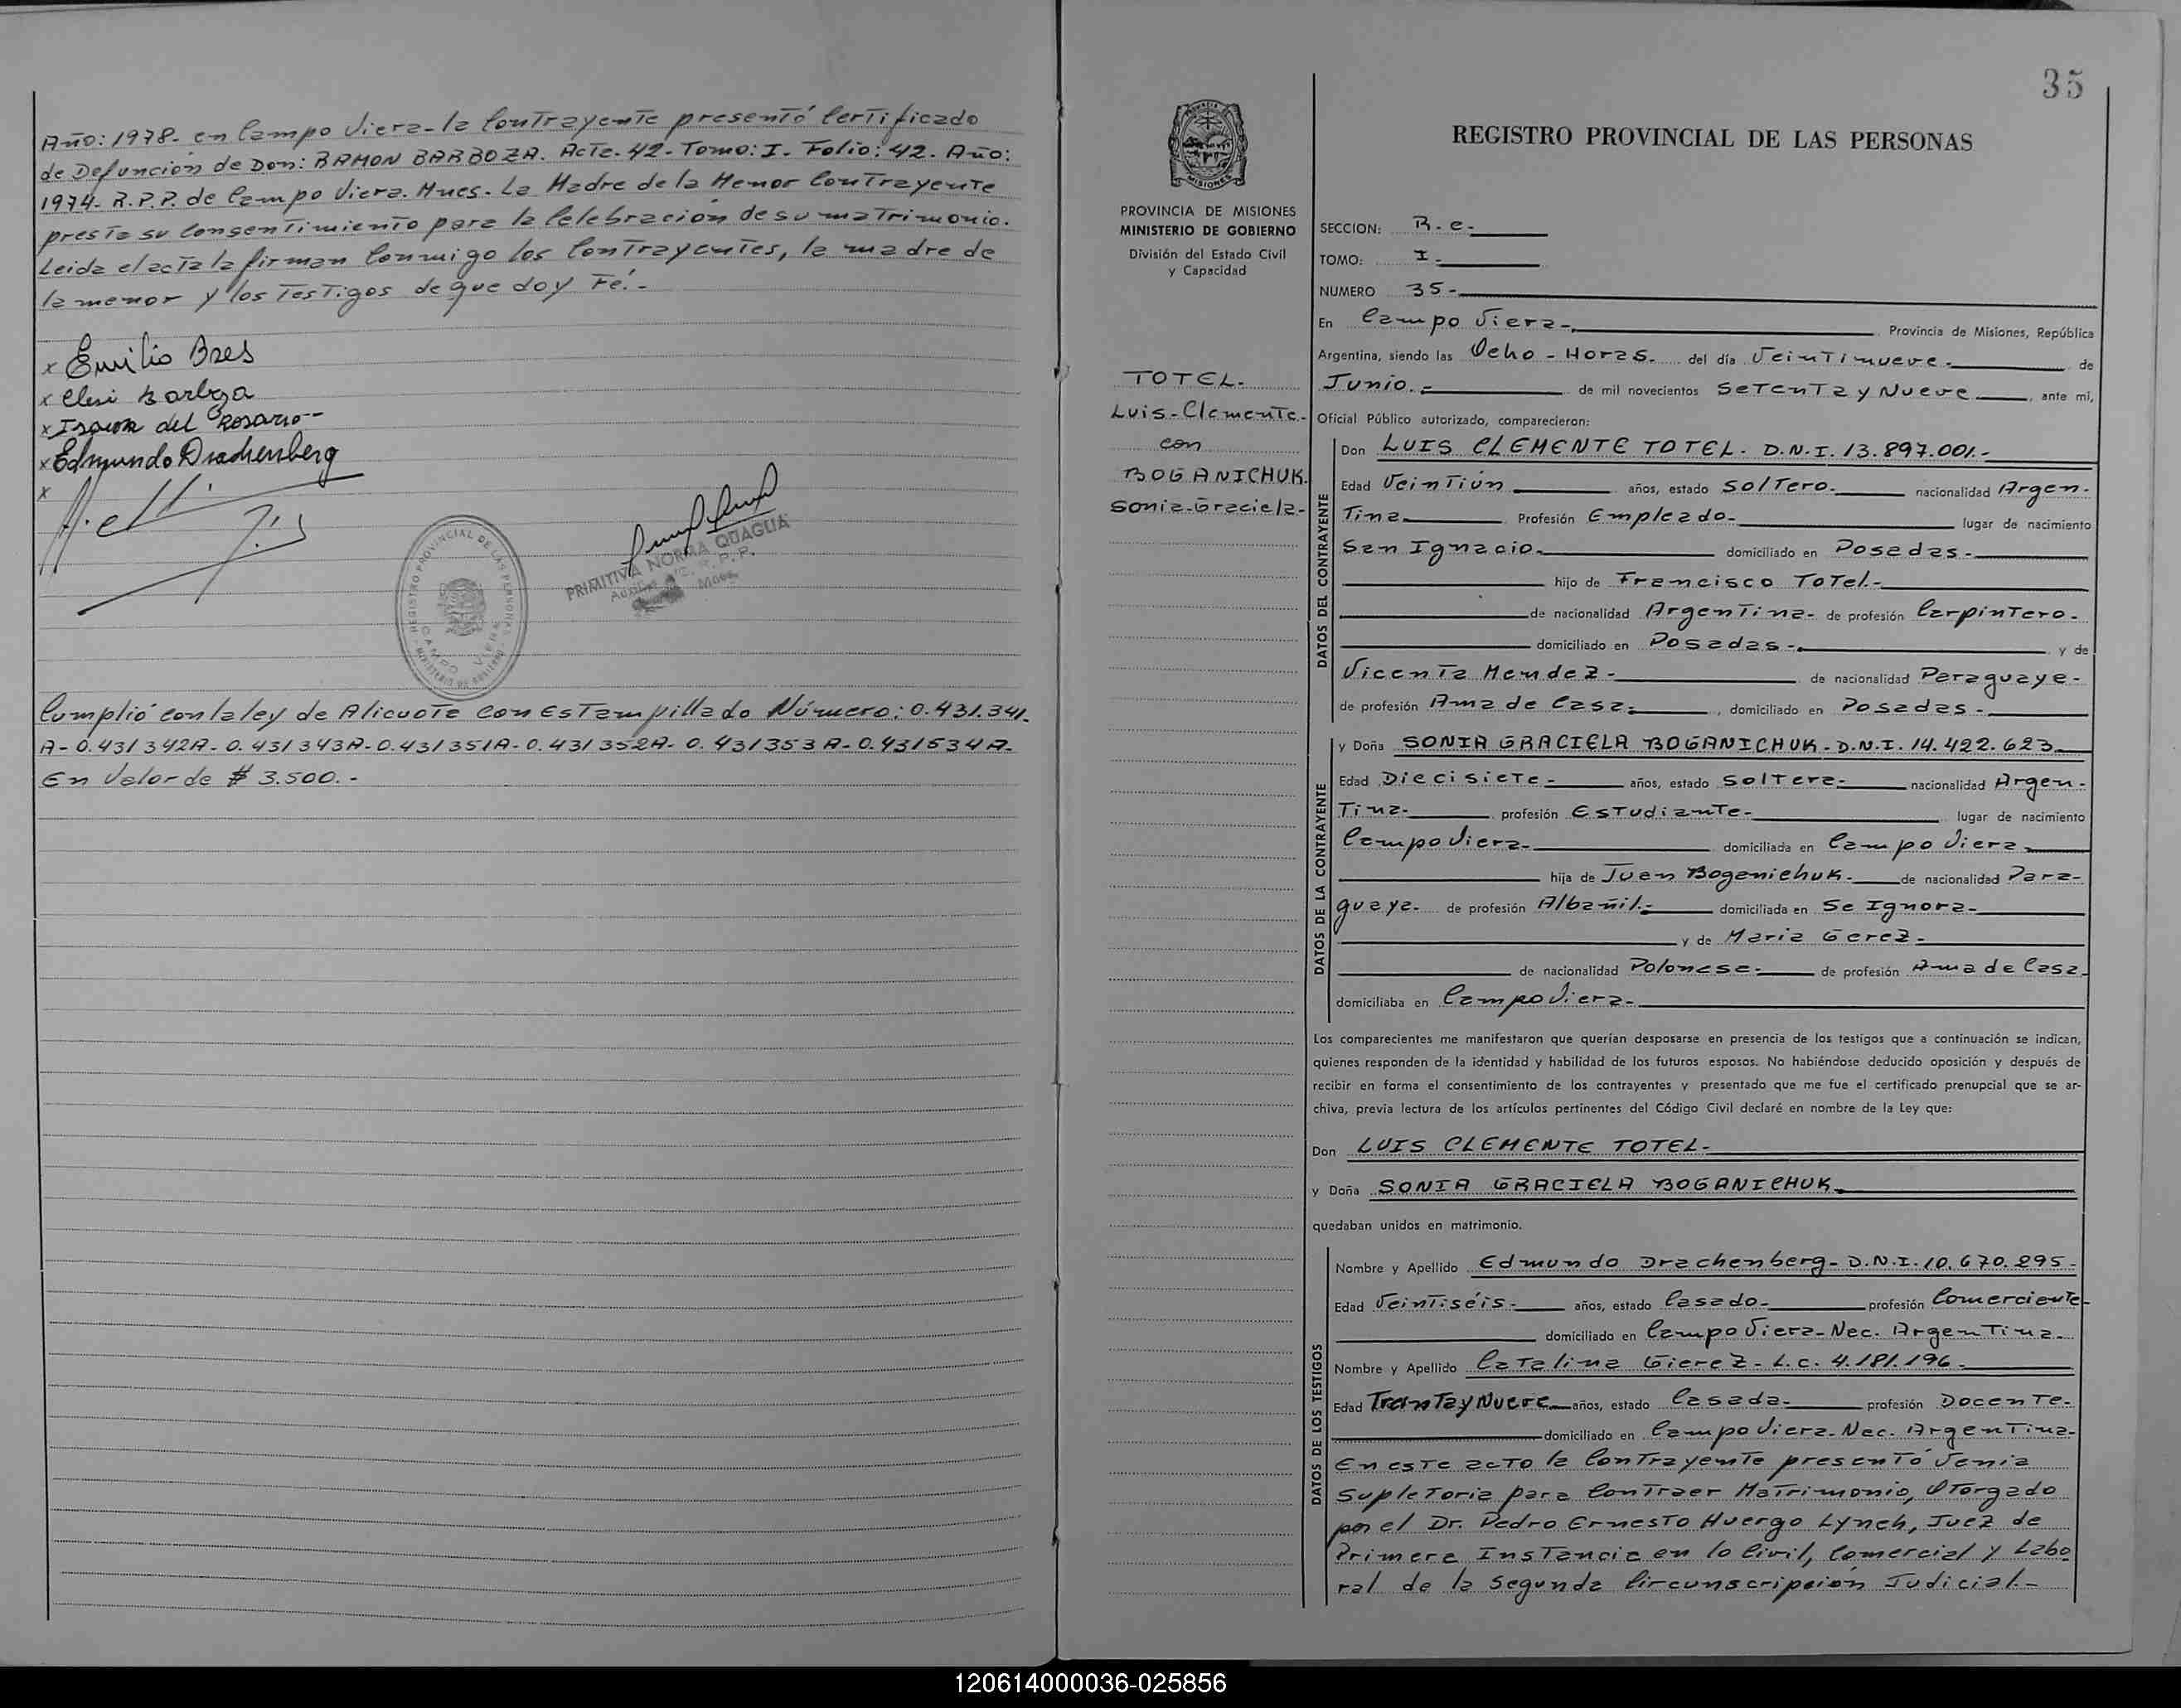 Año: 1978. en Campo Viera - la Contrayente presentó Certificado
de Defunción de Don: RAMON BARBOZA. Acta. 42 - Tomo: I - Folio: 42. Año:
1974. R.P.P. de Campo Viera. Mnes. La Madre de la Menor Contrayente
presta su Consentimiento para la Celebración de su matrimonio.
Leida el acta la firman Conmigo los Contrayentes, la madre de
la menor y los Testigos de que doy Fé. -
x Emilio Baes
x
x del Rosario --
x Edmundo Drachenberg
x
REGISTRO PROVINCIAL DE LAS PERSONAS
CAMPO VIERA
MINISTERIO DE GOBIERNO
PRIMITIVA NORMA QUAGLIA
R. P. P.
Mnes.
Cumplió con la ley de Alicuota con Estampillado Número: 0.431.341.
A - 0.431342A - 0.431343A - 0.431351A - 0.431352A - 0.431353A - 0.431634A -
En Valor de $ 3.500. -
35
PROVINCIA DE MISIONES
MINISTERIO DE GOBIERNO
División del Estado Civil
y Capacidad
TOTEL.
Luis - Clemente -
con
BOGANICHUK.
Sonia - Graciela -
REGISTRO PROVINCIAL DE LAS PERSONAS
SECCION: R. e. -
TOMO: I -
NUMERO 35 -
En Campo Viera -, Provincia de Misiones, República
Argentina, siendo las Ocho - Horas. del día Veintinueve - de
Junio. - de mil novecientos Setenta y Nueve, ante mí,
Oficial Público autorizado, comparecieron:
DATOS DEL CONTRAYENTE
Don LUIS CLEMENTE TOTEL - D.N.I. 13.897.001. -
Edad Veintiún años, estado Soltero. nacionalidad Argen-
Tina. Profesión Empleado - lugar de nacimiento
San Ignacio. domiciliado en Posadas -
hijo de Francisco Totel -
de nacionalidad Argentina - de profesión Carpintero -
domiciliado en Posadas -, y de
Vicenta Mendez - de nacionalidad Paraguaya -
de profesión Ama de Casa -, domiciliado en Posadas -
DATOS DE LA CONTRAYENTE
y Doña SONIA GRACIELA BOGANICHUK - D.N.I. 14.422.623
Edad Diecisiete - años, estado Soltera - nacionalidad Argen-
Tina - profesión Estudiante - lugar de nacimiento
Campo Viera - domiciliada en Campo Viera
hija de Juan Boganichuk. de nacionalidad Para-
guaya. de profesión Albañil - domiciliada en Se Ignora -
y de Maria Gerez -
de nacionalidad Polonesa - de profesión Ama de Casa
domiciliaba en Campo Viera -
Los comparecientes me manifestaron que querían desposarse en presencia de los testigos que a continuación se indican,
quienes responden de la identidad y habilidad de los futuros esposos. No habiéndose deducido oposición y después de
recibir en forma el consentimiento de los contrayentes y presentado que me fue el certificado prenupcial que se ar-
chiva, previa lectura de los artículos pertinentes del Código Civil declaré en nombre de la Ley que:
Don LUIS CLEMENTE TOTEL -
y Doña SONIA GRACIELA BOGANICHUK
quedaban unidos en matrimonio.
DATOS DE LOS TESTIGOS
Nombre y Apellido Edmundo Drachenberg - D.N.I. 10.670.295 -
Edad Veintiséis - años, estado Casado - profesión Comerciante -
domiciliado en Campo Viera - Nac. Argentina -
Nombre y Apellido Catalina Gierez - L.C. 4.181.196 -
Edad Treinta y Nueve años, estado Casada - profesión Docente -
domiciliado en Campo Viera - Nac. Argentina -
En este acto la Contrayente presentó Venia
Supletoria para Contraer Matrimonio, Otorgado
por el Dr. Pedro Ernesto Huergo Lynch, Juez de
Primera Instancia en lo Civil, Comercial y Labo
ral de la Segunda Circunscripción Judicial -
120614000036-025856